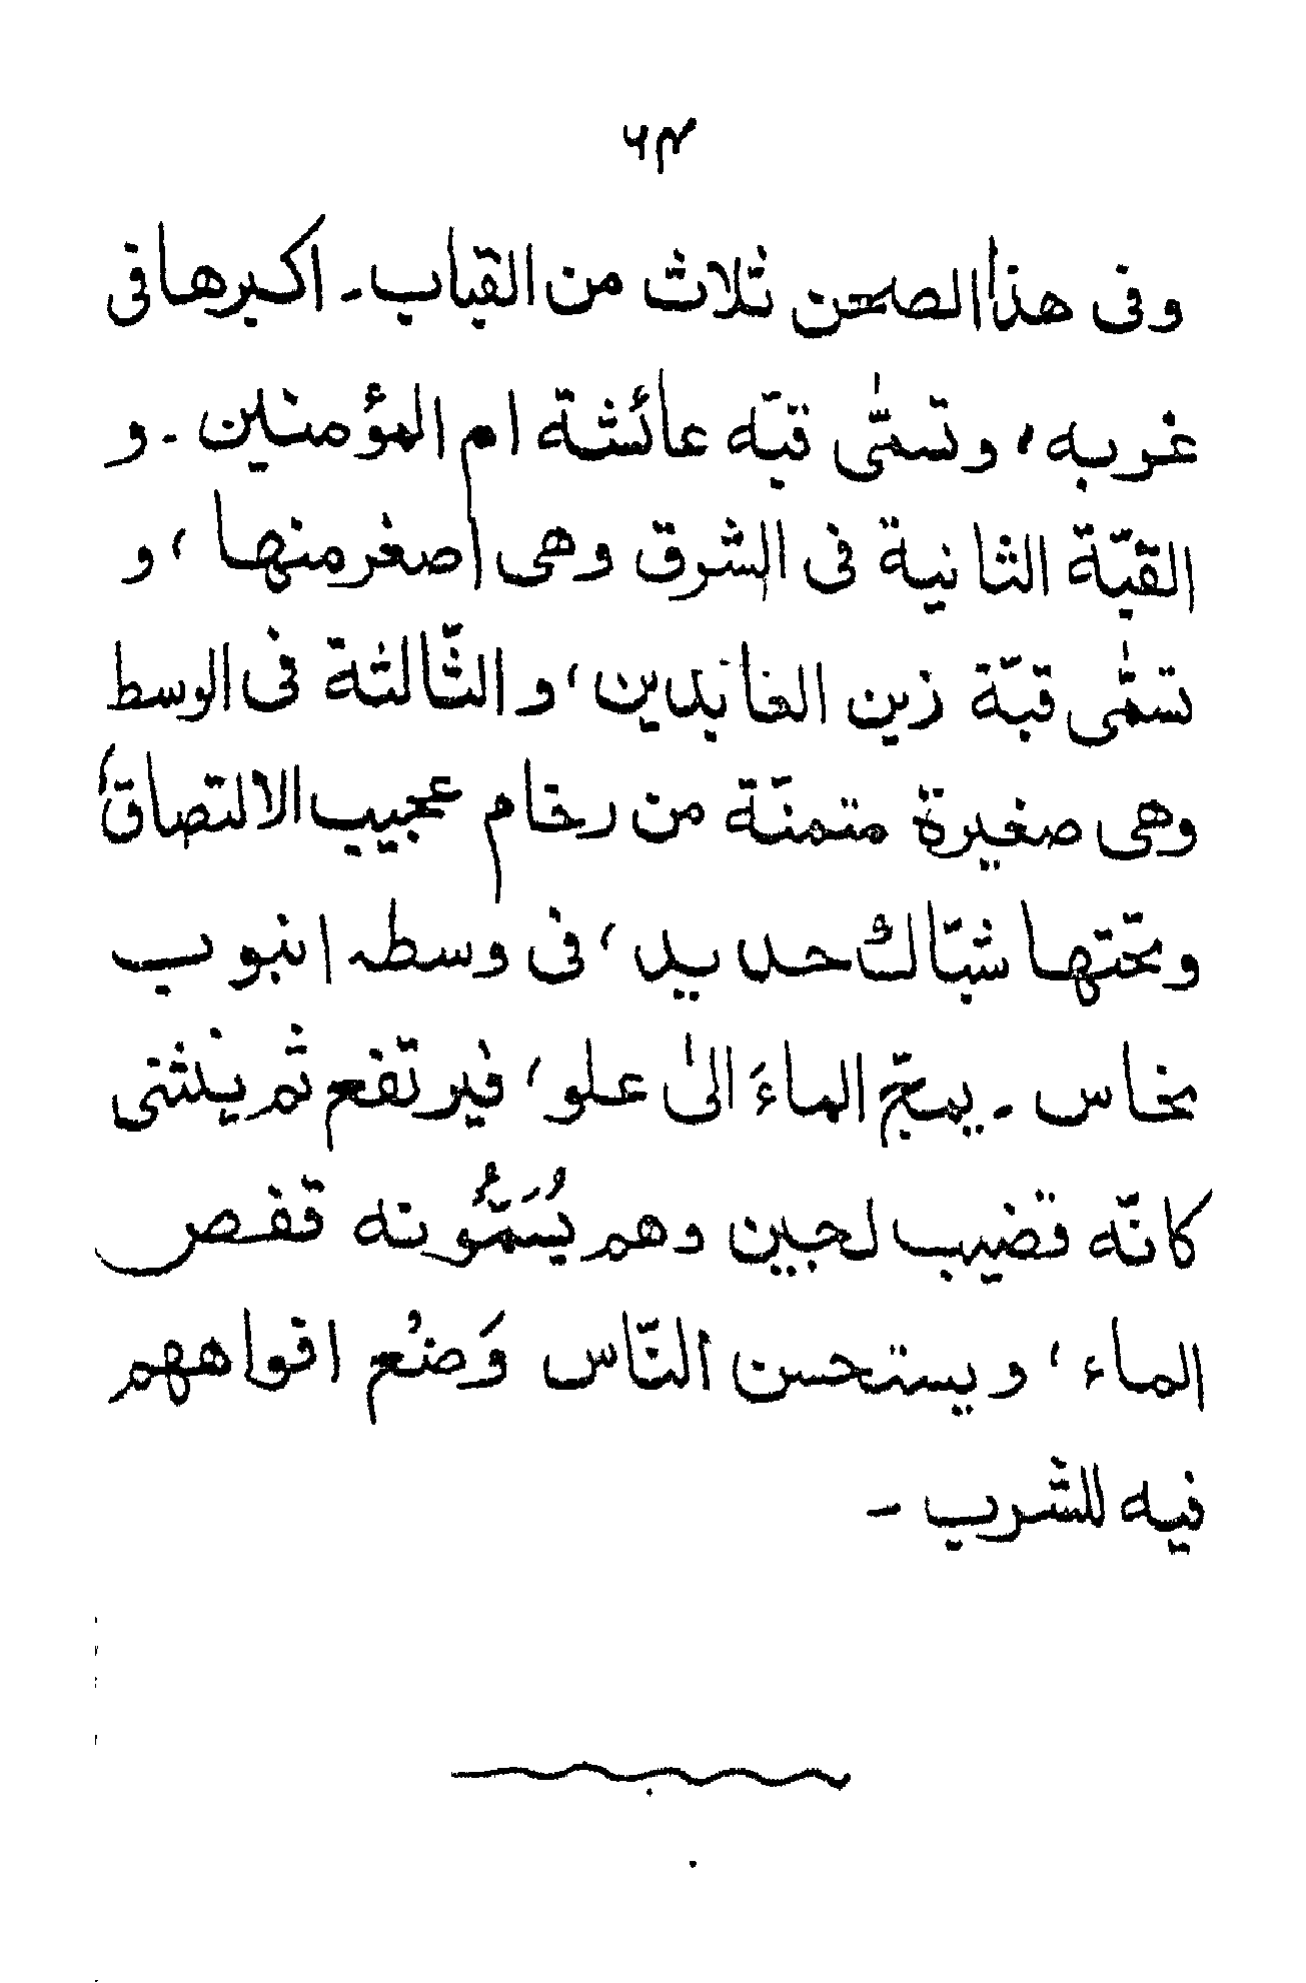 ٦٣
وفى هذا الصحن ثلاث من القباب۔ اكبرها فى
غربه، وتسمّٰى قبّه عائشة ام المؤمنين ۔ و
القبّة الثانية فى الشرق وهى اصغر منها، و
تسمّٰى قبّة زين العابدين، والثّالثة فى الوسط
وهى صغيرة مثمنّة من رخام عجيب الالتصاق،
وتحتها شبّاك حديد، فى وسطه انبوب
نحاس ۔ يمجّ الماءَ الىٰ علو، فيرتفع ثم ينثنى
كانّه قضيب لجين وهم يُسَمُّونه قفص
الماء، ويستحسن النّاس وَضْع افواههم
فيه للشرب ۔